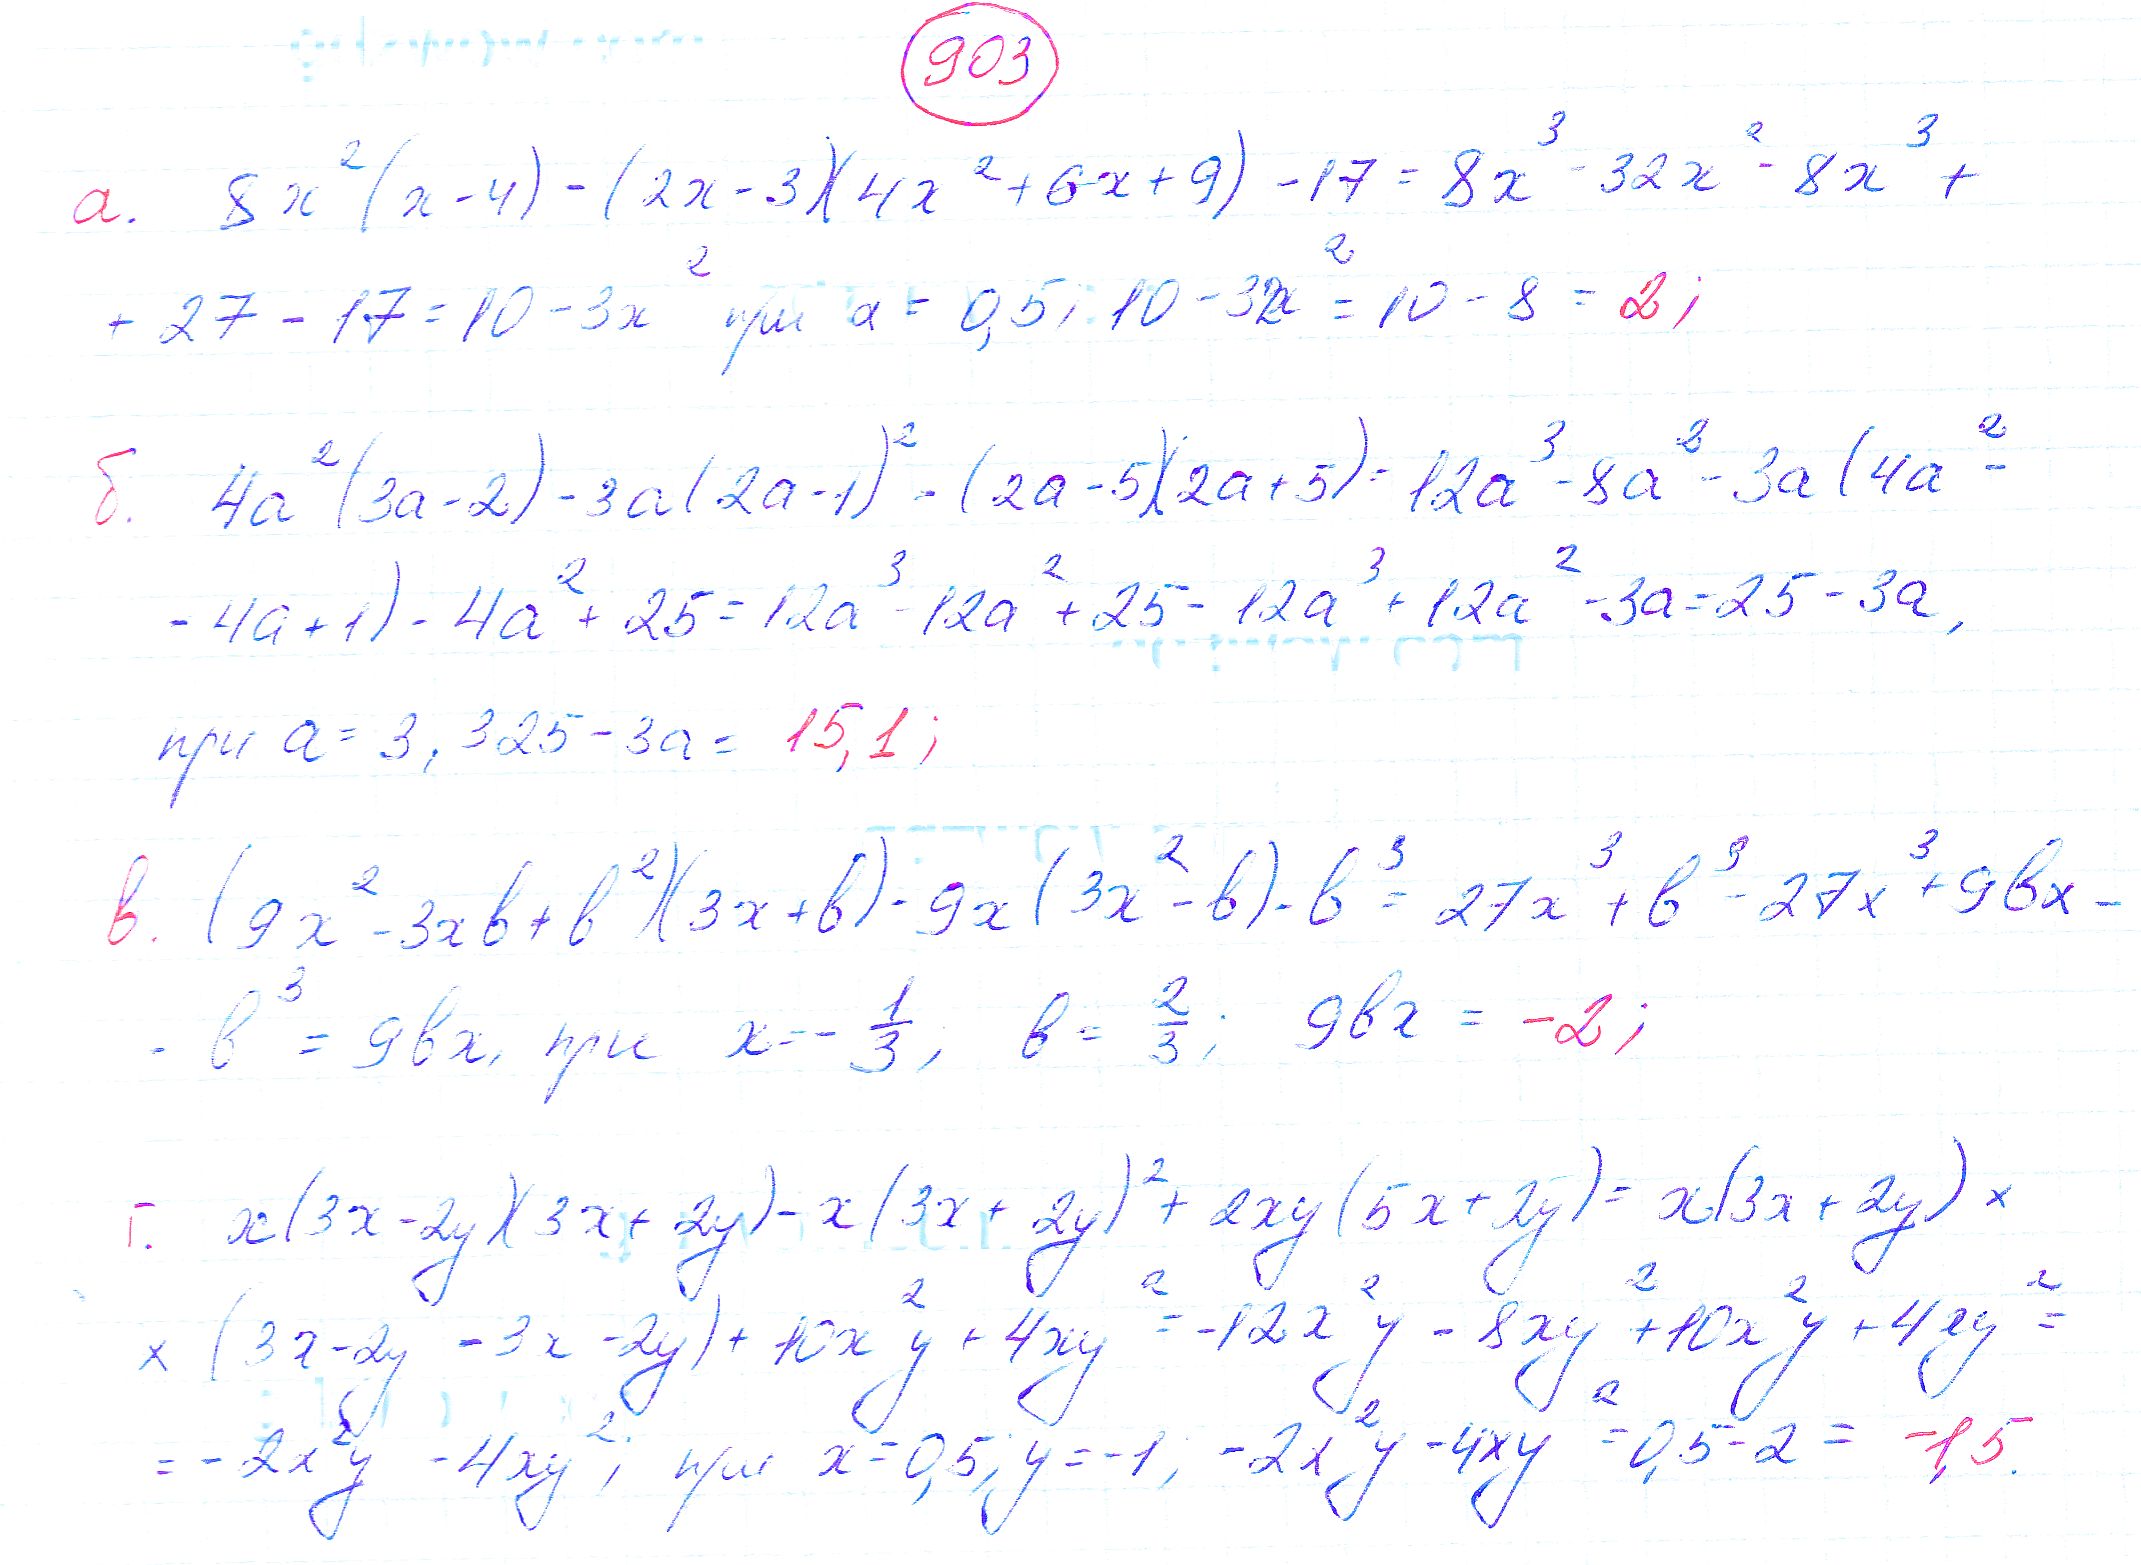 903
а. 8x²(x-4)-(2x-3)(4x²+6x+9)-17=8x³-32x²-8x³+
+27-17=10-3x² при x=0,5; 10-32x²=10-8=2;
б. 4a²(3a-2)-3a(2a-1)²-(2a-5)(2a+5)=12a³-8a²-3a(4a²-
-4a+1)-4a²+25=12a³-12a²+25-12a³+12a²-3a=25-3a,
при a=3,325-3a=15,1;
в. (9x²-3xb+b²)(3x+b)-9x(3x²-b)-b³=27x³+b³-27x³+9bx-
-b³=9bx, при x=-1/3; b=2/3; 9bx=-2;
г. x(3x-2y)(3x+2y)-x(3x+2y)²+2xy(5x+2y)=x(3x+2y)×
×(3x-2y-3x-2y)+10x²y+4xy²=-12x²y-8xy²+10x²y+4xy²=
=-2x²y-4xy²; при x=0,5; y=-1; -2x²y-4xy²=0,5-2=-1,5.